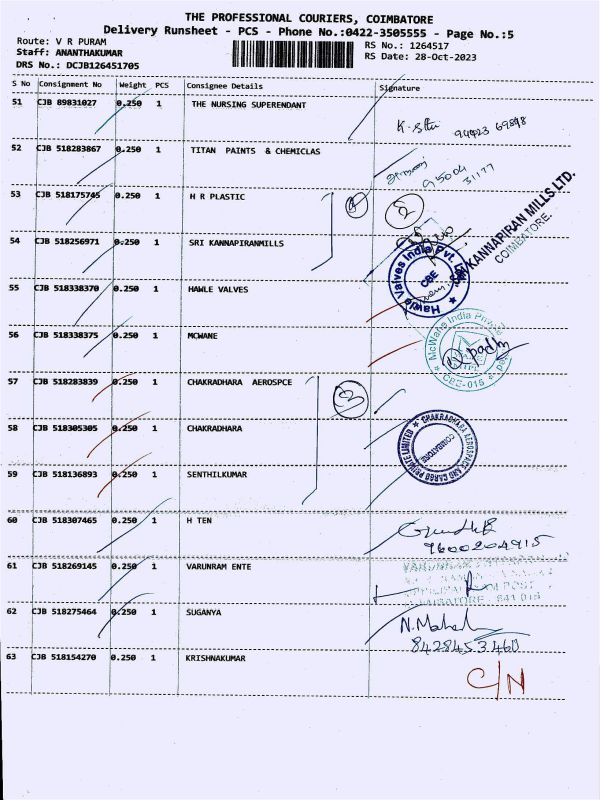 THE PROFESSIONAL COURIERS, COIMBATORE
Delivery Runsheet - PCS - Phone No.:0422-3505555 - Page No.:5
Route: V R PURAM
RS No.: 1264517
Staff: ANANTHAKUMAR
RS Date: 28-Oct-2023
DRS No.: DCJB126451705
S No Consignment No Weight PCS Consignee Details Signature
51 CJB 89831027 0.250 1 THE NURSING SUPERENDANT
94423 69898
52 CJB 518283867 0.250 1 TITAN PAINTS & CHEMICLAS
95004
31177
53 CJB 518175745 0.250 1 H R PLASTIC
2
KANNAPIRAN MILLS LTD.
COIMBATORE.
54 CJB 518256971 0.250 1 SRI KANNAPIRANMILLS
Hawle Valves India Pvt. Ltd.
CBE
55 CJB 518338370 0.250 1 HAWLE VALVES
56 CJB 518338375 0.250 1 MCWANE
McWane India Private
CBE-015
57 CJB 518283839 0.250 1 CHAKRADHARA AEROSPCE
58 CJB 518305305 0.250 1 CHAKRADHARA
CHAKRADHARA AEROSPACE AND CARGO PRIVATE LIMITED
COIMBATORE
59 CJB 518136893 0.250 1 SENTHILKUMAR
60 CJB 518307465 0.250 1 H TEN
9600204915
61 CJB 518269145 0.250 1 VARUNRAM ENTE
62 CJB 518275464 0.250 1 SUGANYA
N. Mahal
8428453460
63 CJB 518154270 0.250 1 KRISHNAKUMAR
C/N